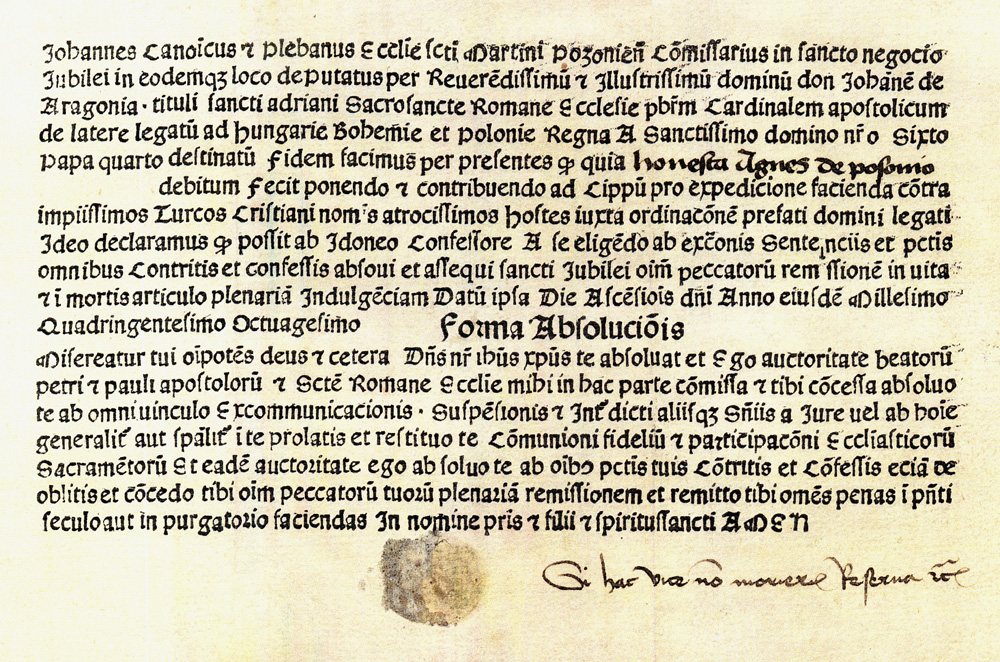 Johannes Canoīcus ⁊ Plebanus Ecclīe sctī Martini Pozonieñ Cōmissarius in sancto negocio
Jubilei in eodemqꝫ loco deputatus per Reverēdissimū ⁊ Illustrissimū dominū don Johānē de
Aragonia · tituli sancti adriani Sacrosancte Romane Ecclesie pbr̄m Cardinalem apostolicum
de latere legatū ad hungarie Bohemīe et Polonie Regna A Sanctissimo domino nr̄o Sixto
Papa quarto destinatū Fidem facimus per presentes ꝙ quia honesta Agnes de posonio
debitum Fecit ponendo ⁊ contribuendo ad Cippū pro expedicione facienda cōtra
impiissimos Turcos Cristiani nom's atrocissimos hostes iuxta ordinacōnē prefati domini legati
Ideo declaramus ꝙ possit ab Idoneo Confessore A se eligēdo ab exc̄onis Sentenciis et pctīs
omnibus Contritis et confessis absoui et assequi sancti Jubilei oīm peccatorū remissionē in vita
⁊ ī mortis articulo plenariā Indulgēciam Datū ipsa Die Ascēsiois dn̄i Anno eiusdē Millesimo
Quadringentesimo Octuagesimo Forma Absolucōis
Misereatur tui oīpotēs deus ⁊ cetera Dn̄s nr̄ ihūs xp̄us te absoluat et Ego auctoritate beatorū
petri ⁊ pauli apostolorū ⁊ Sctē Romane Ecclīe mihi in hac parte cōmissa ⁊ tibi cōcessa absoluo
te ab omni uinculo Excommunicacionis · Suspēsionis ⁊ Int̄dicti aliisqꝫ Sn̄iis a Jure vel ab hoīe
generalit̄ aut spālit̄ ī te prolatis et restituo te Cōmunioni fideliū ⁊ participacōni Ecclīasticorū
Sacramētorū Et eadē auctoritate ego absoluo te ab oībꝯ pctīs tuis Cōtritis et Cōfessis eciā de
oblitis et cōcedo tibi oīm peccatorū tuorū plenariā remissionem et remitto tibi omēs penas ī pn̄ti
seculo aut in purgatorio faciendas In nomine pr̄is ⁊ filii ⁊ spiritussancti AMEN
Si hac vice nō
Reserva